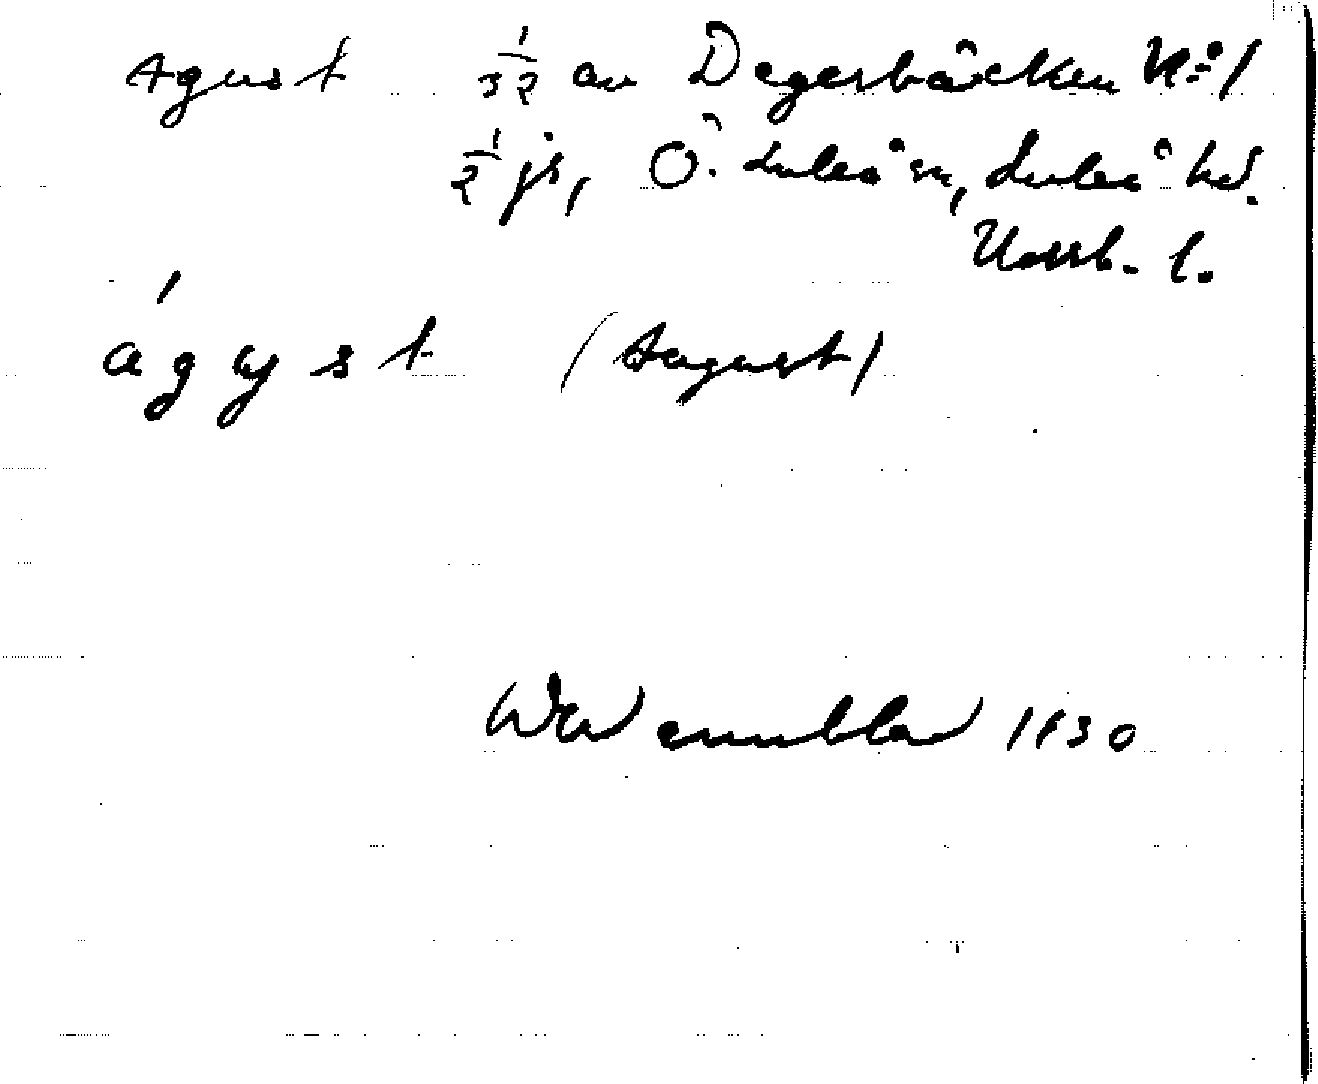 Agust 1/32 av Degerbäcken N:o 1
1/2 js, Ö. Luleå sn, Luleå hd.
Norrb. l.
ágyst (August)
1130